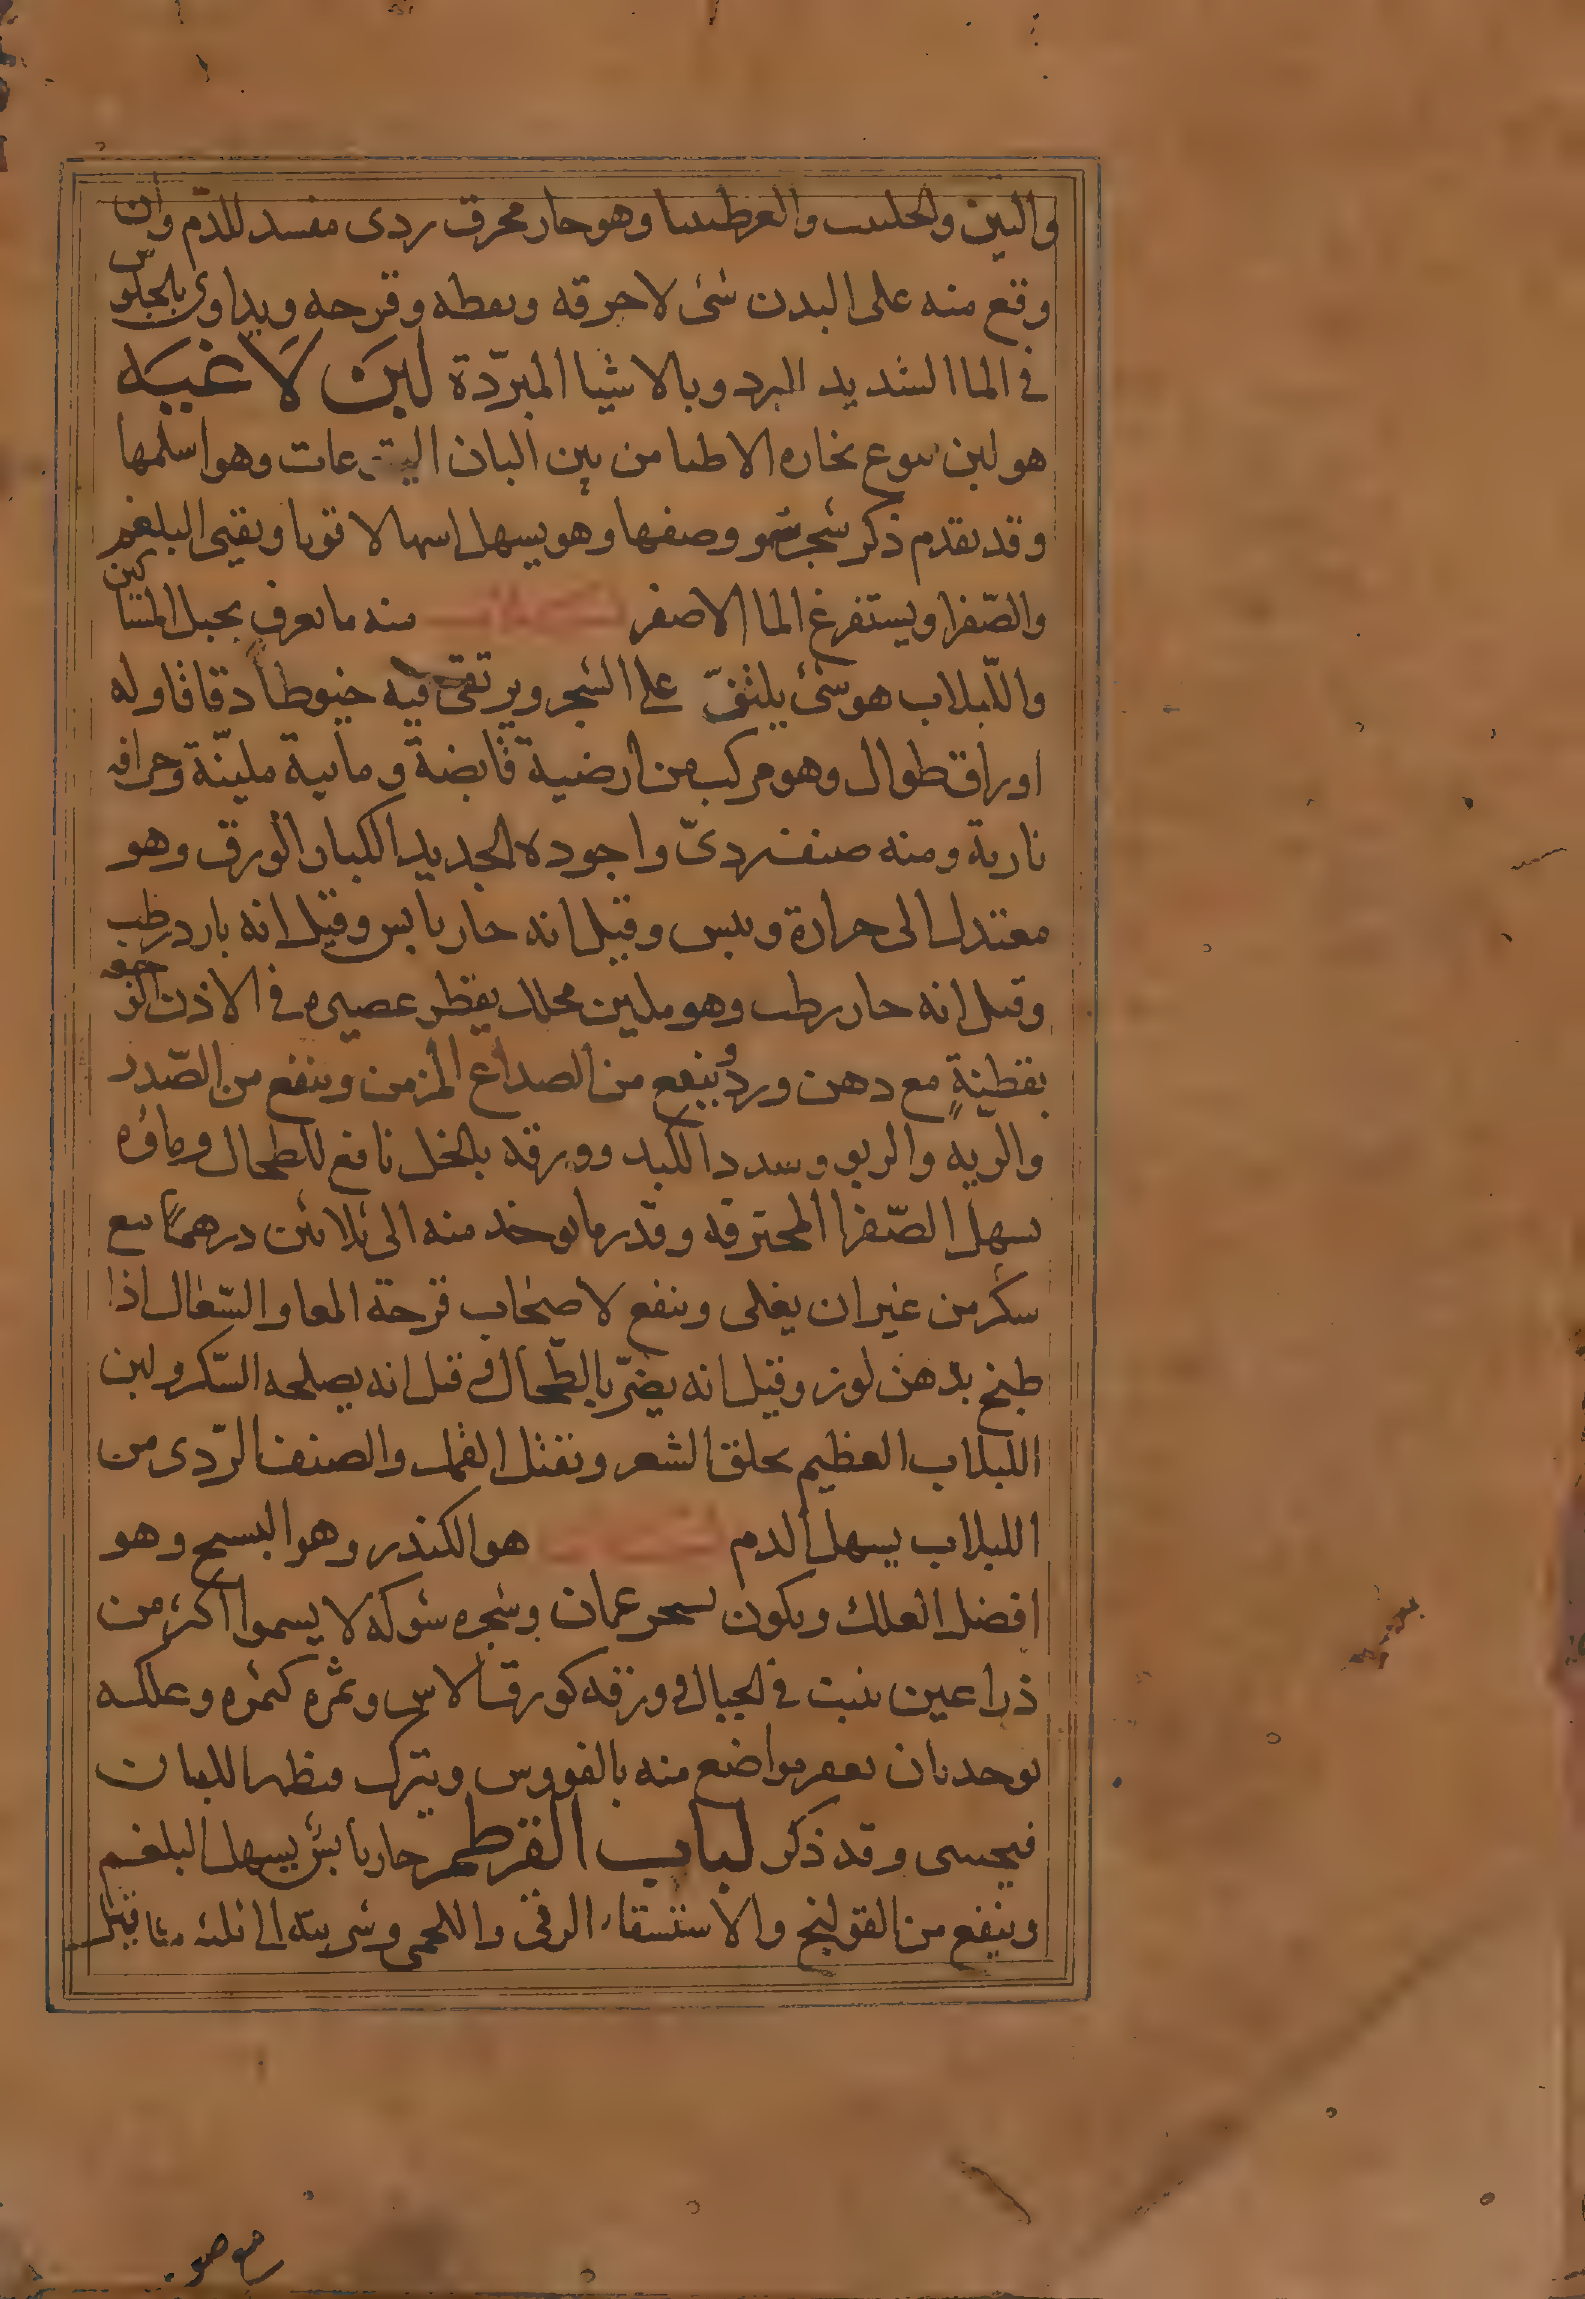 والتين والحلتيت والعرطنيثا وهو حار محرق ردى مفسد للدّم وان
وقع منه على البدن شئ لاحرقه ونفطه وقرحه ويداوى بالجلوس
فى الما الشديد البرد وبالاشيا المبرّدة لبن لاغيه
هو لبن يتوع تختاره الاطبا من بين البان اليتوعات وهو اسلمها
وقد تقدم ذكر شجرته ووصفها وهو يسهل اسهالا قويا ويقيى البلغم
والصّفرا ويستفرغ الما الاصفر منه ما يعرف بحبل المساكين
واللّبلاب هو شئ يلتفّ على الشجر ويرتقى فيه خيوطاً دقاقا وله
اوراق طوال وهو مركب من ارضية قابضة ومايية مليّنة وحرافه
نارية ومنه صنف ردىّ واجوده الجديد الكبار الورق وهو
معتدل الى حرارة ويبس وقيل انه حار يابس وقيل انه بارد رطب
وقيل انه حار رطب وهو ملين محلل يقطر عصيره فى الاذن الوجعه
بقطنةٍ مع دهن ورد وينفع من الصداع المزمن وينفع من الصّدر
والريه والربو وسدد الكبد وورقه بالخل نافع للطحال وماؤه
يسهل الصّفرا المحترقه وقدر ما يوخذ منه الى ثلاثين درهماً مع
سكّر من غير ان يغلى وينفع لاصحاب قرحة المعا والسّعال اذا
طبخ بدهن لوز وقيل انه يضرّ بالطّحال وقيل انه يصلحه السّكر ولبن
اللبلاب العظيم يحلق الشعر ويقتل القمل والصنف الرّدى من
اللبلاب يسهل الدم هو الكندر وهو البسمج وهو
افضل العلك ويكون بشحر عمان وشجره شوكه لا يسموا اكثر من
ذراعين ينبت فى الجبال وورقه كورق الاس وثمره كثمره وعلكه
يوخد بان يعقر مواضع منه بالفووس ويترك فيظهر اللبان
فيجنى وقد ذكر لباب القرطم حار يابس يسهل البلغم
وينفع من القولنج والاستسقاء الزقى واللحمى وشربته الى ثلثه مثاقيل